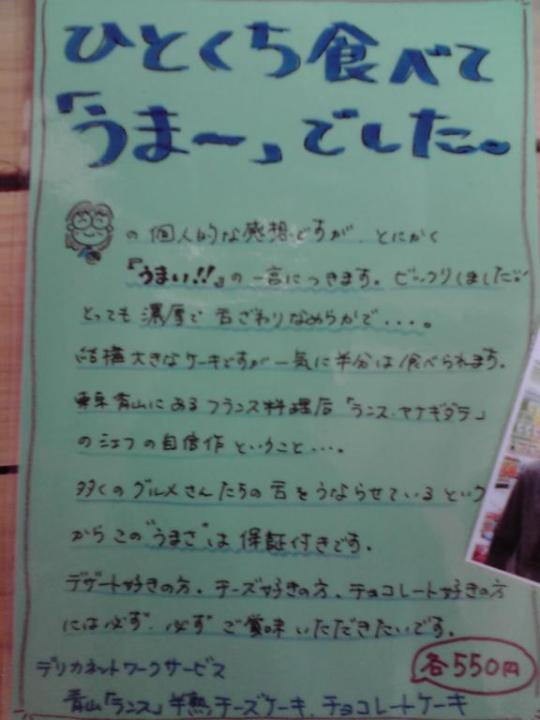 ひとくち食べて
「うまー」でした。
の個人的な感想ですが、とにかく
『うまい!!』の一言につきます。ビックリしました!
とっても濃厚で舌ざわりなめらかで・・・・。
結構大きなケーキですが一気に半分は食べられます。
東京青山にあるフランス料理店「ランス・ヤナギダテ」
のシェフの自信作ということ・・・。
多くのグルメさんたちの舌をうならせているという
からこの"うまさ"は保証付きです。
デザート好きの方、チーズ好きの方、チョコレート好きの方
には必ず、必ずご賞味いただきたいです。
デリカネットワークサービス
各550円
青山「ランス」半熟チーズケーキ、チョコレートケーキ